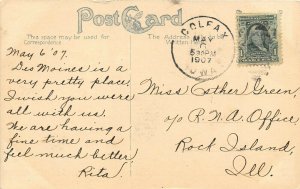 Post Card
This space may be used for
Correspondence
The Address
COLFAX
MAY
6
1907
IOWA
May 6 '07.
Des Moines is a
very pretty place
I wish you were
all with us.
We are having a
fine time and
feel much better
Rita.
Miss Esther Green,
c/o R.N.A. Office
Rock Island,
Ill.